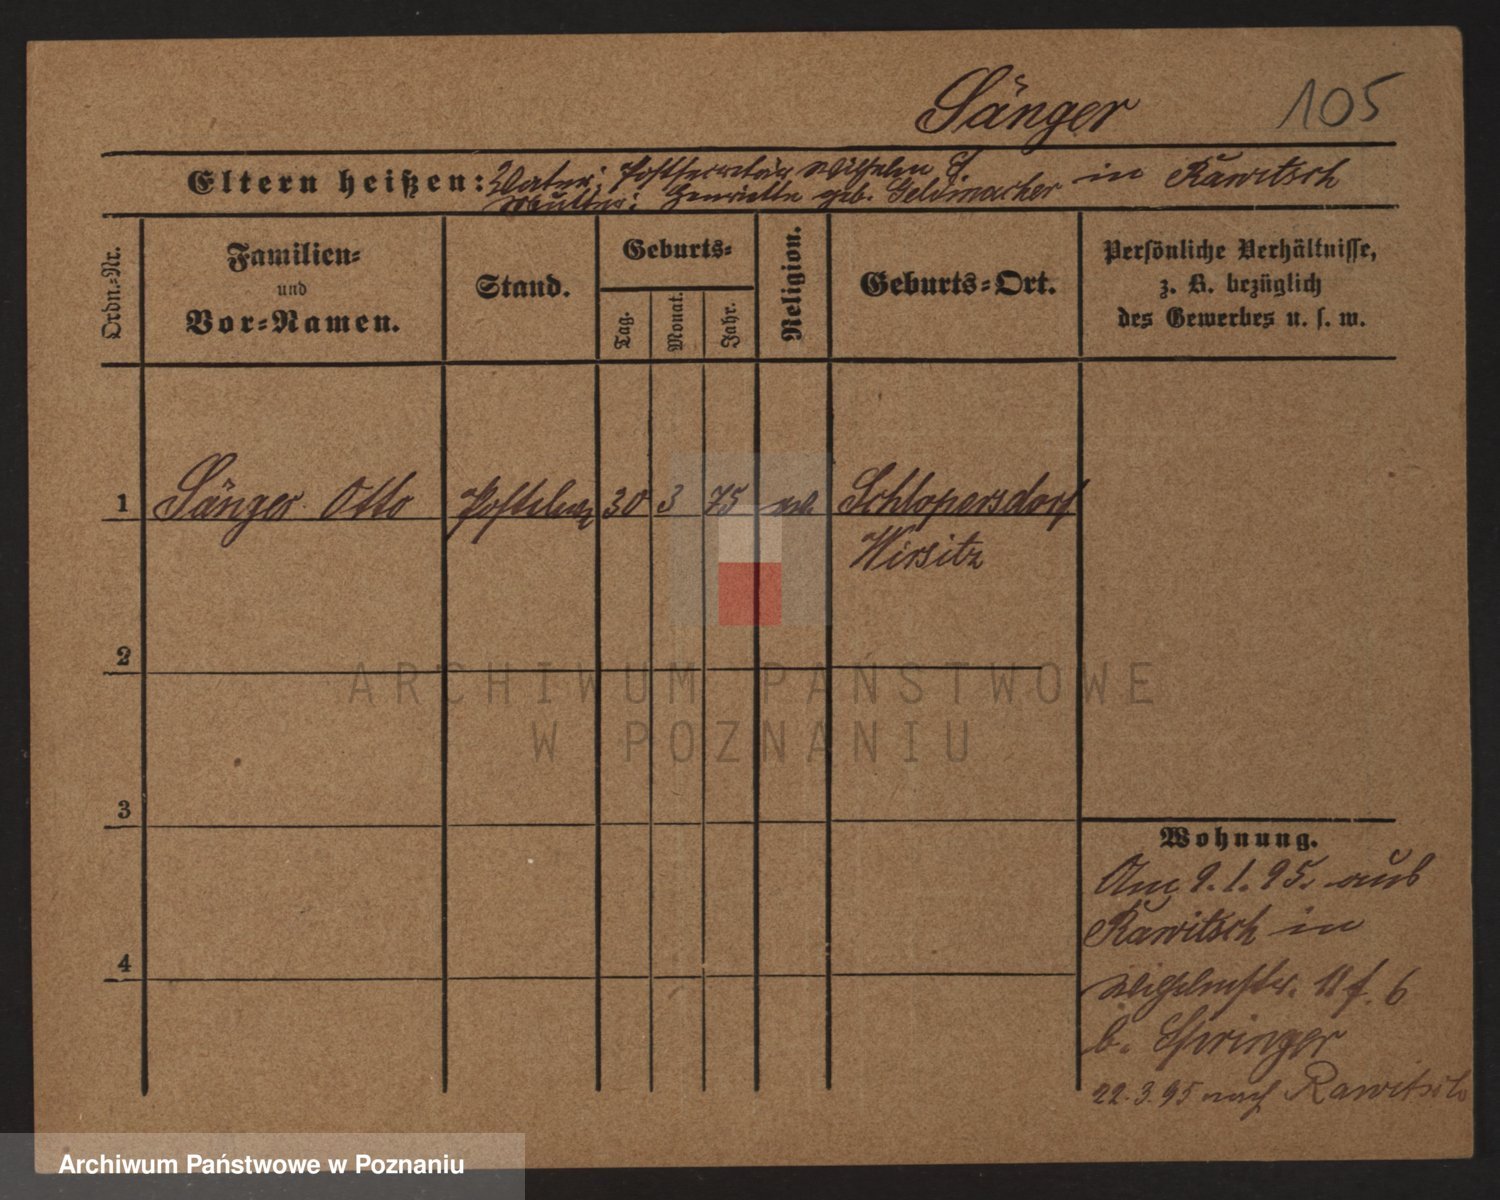 Sänger 105
Eltern heißen: Vater: Postsecretär Wilhelm S. in Rawitsch
Mutter: Henriette geb. Geldmacher
Ordn.-Nr.
Familien-
und
Vor-Namen.
Stand.
Geburts-
Tag.
Monat.
Jahr.
Religion.
Geburts-Ort.
Persönliche Verhältnisse,
z. B. bezüglich
des Gewerbes u. s. w.
1 Sänger Otto 30 3 75 Schlopersdorf
Wirsitz
2
ARCHIWUM PAŃSTWOWE
W POZNANIU
3
Wohnung.
Am 9.1.95. aus
Rawitsch in
4
Wilhelmstr. 6
b. Springer
22.3.95 nach Rawitsch
Archiwum Państwowe w Poznaniu